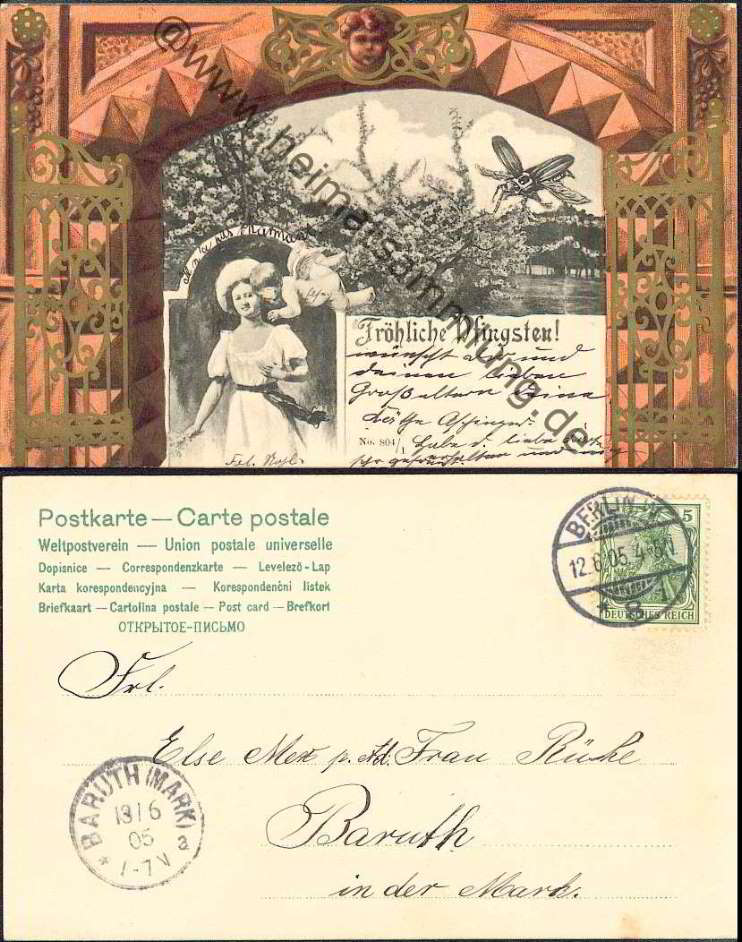 @www.heimatsammlung.de
Fröhliche Pfingsten!
wünscht Dir und
deinen lieben
Großeltern Deine
Käthe Aschinger.
No. 804/1
Habe d. liebe Karte
Frl. Kohl.
Postkarte — Carte postale
Weltpostverein — Union postale universelle
Dopisnice — Correspondenzkarte — Levelező-Lap
Karta korespondencyjna — Korespondenční listek
Briefkaart — Cartolina postale — Post card — Brefkort
ОТКРЫТОЕ-ПИСЬМО
BERLIN W.
12.6.05. 4-5N.
* 8
5
DEUTSCHES REICH
Frl.
Else Mex p. Ad. Frau Rücke
Baruth
in der Mark.
* BARUTH (MARK) a
13/6
05
7-7V